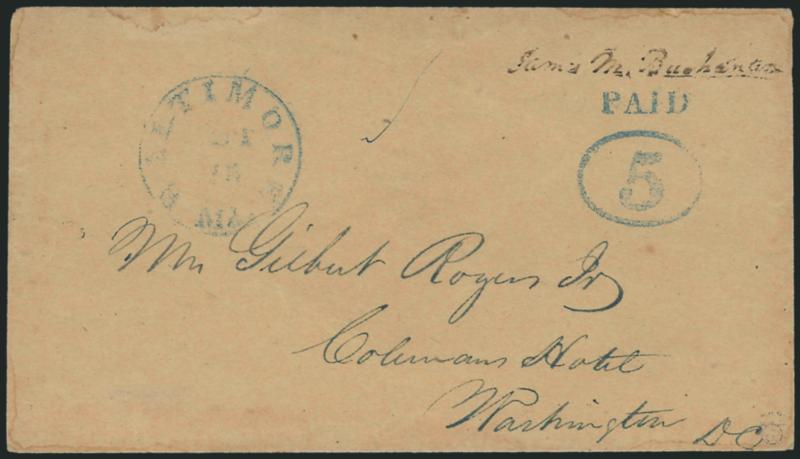 James M. Buchanan
PAID
5
BALTIMORE
Md.
Mr Gilbert Rogers Jr
Colemans Hotel
Washington D C